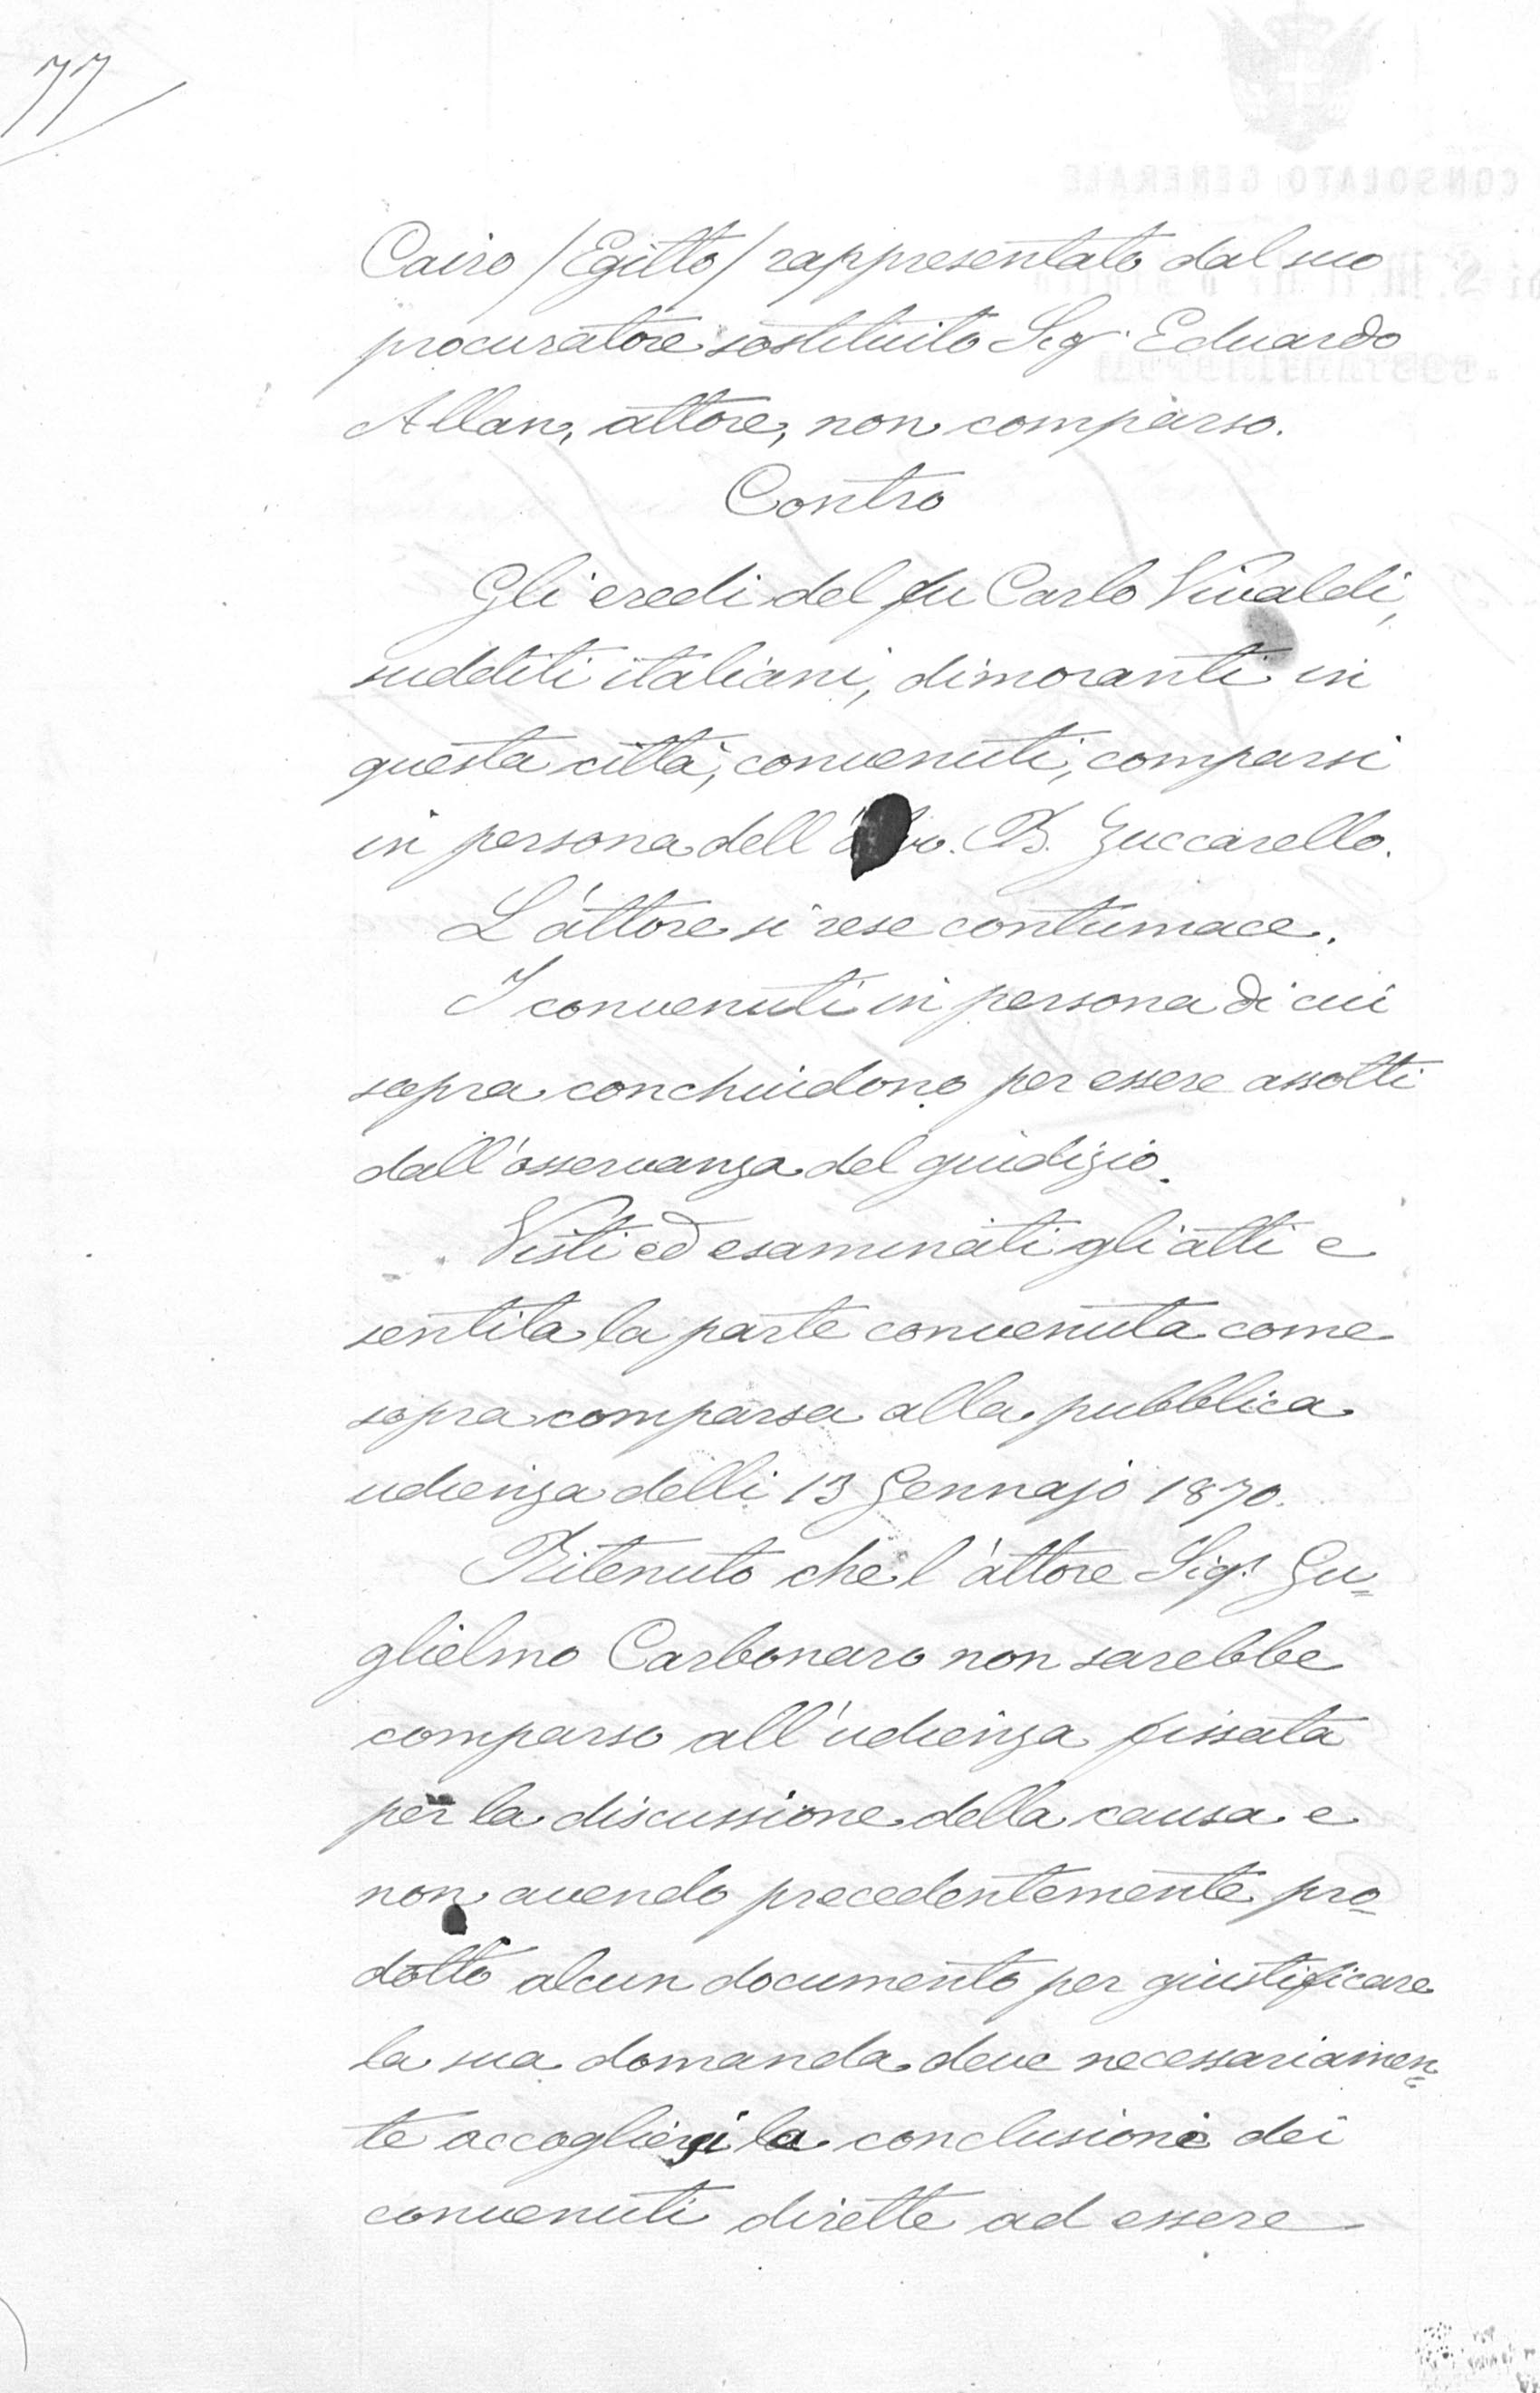 77
Cairo /Egitto/ rappresentato dal suo
procuratore sostituito Sigr Eduardo
Allan, attore, non comparso.
Contro
Gli eredi del fu Carlo Vivaldi,
sudditi italiani, dimoranti in
questa città, convenuti, comparsi
in persona dell' B. Zuccarello.
L'attore si rese contumace.
I convenuti in persona di cui
sopra conchiudono per essere assolti
dall'osservanza del giudizio.
Visti ed esaminati gli atti e
sentita la parte convenuta come
sopra comparsa alla pubblica
udienza delli 13 Gennajo 1870.
Ritenuto che l'attore Sigr Gu=
glielmo Carbonaro non sarebbe
comparso all'udienza fissata
per la discussione della causa e
non avendo precedentemente pro=
dotto alcun documento per giustificare
la sua domanda deve necessariamen=
te accogliersi la conclusione dei
convenuti dirette ad essere
CONSOLATO GENERALE